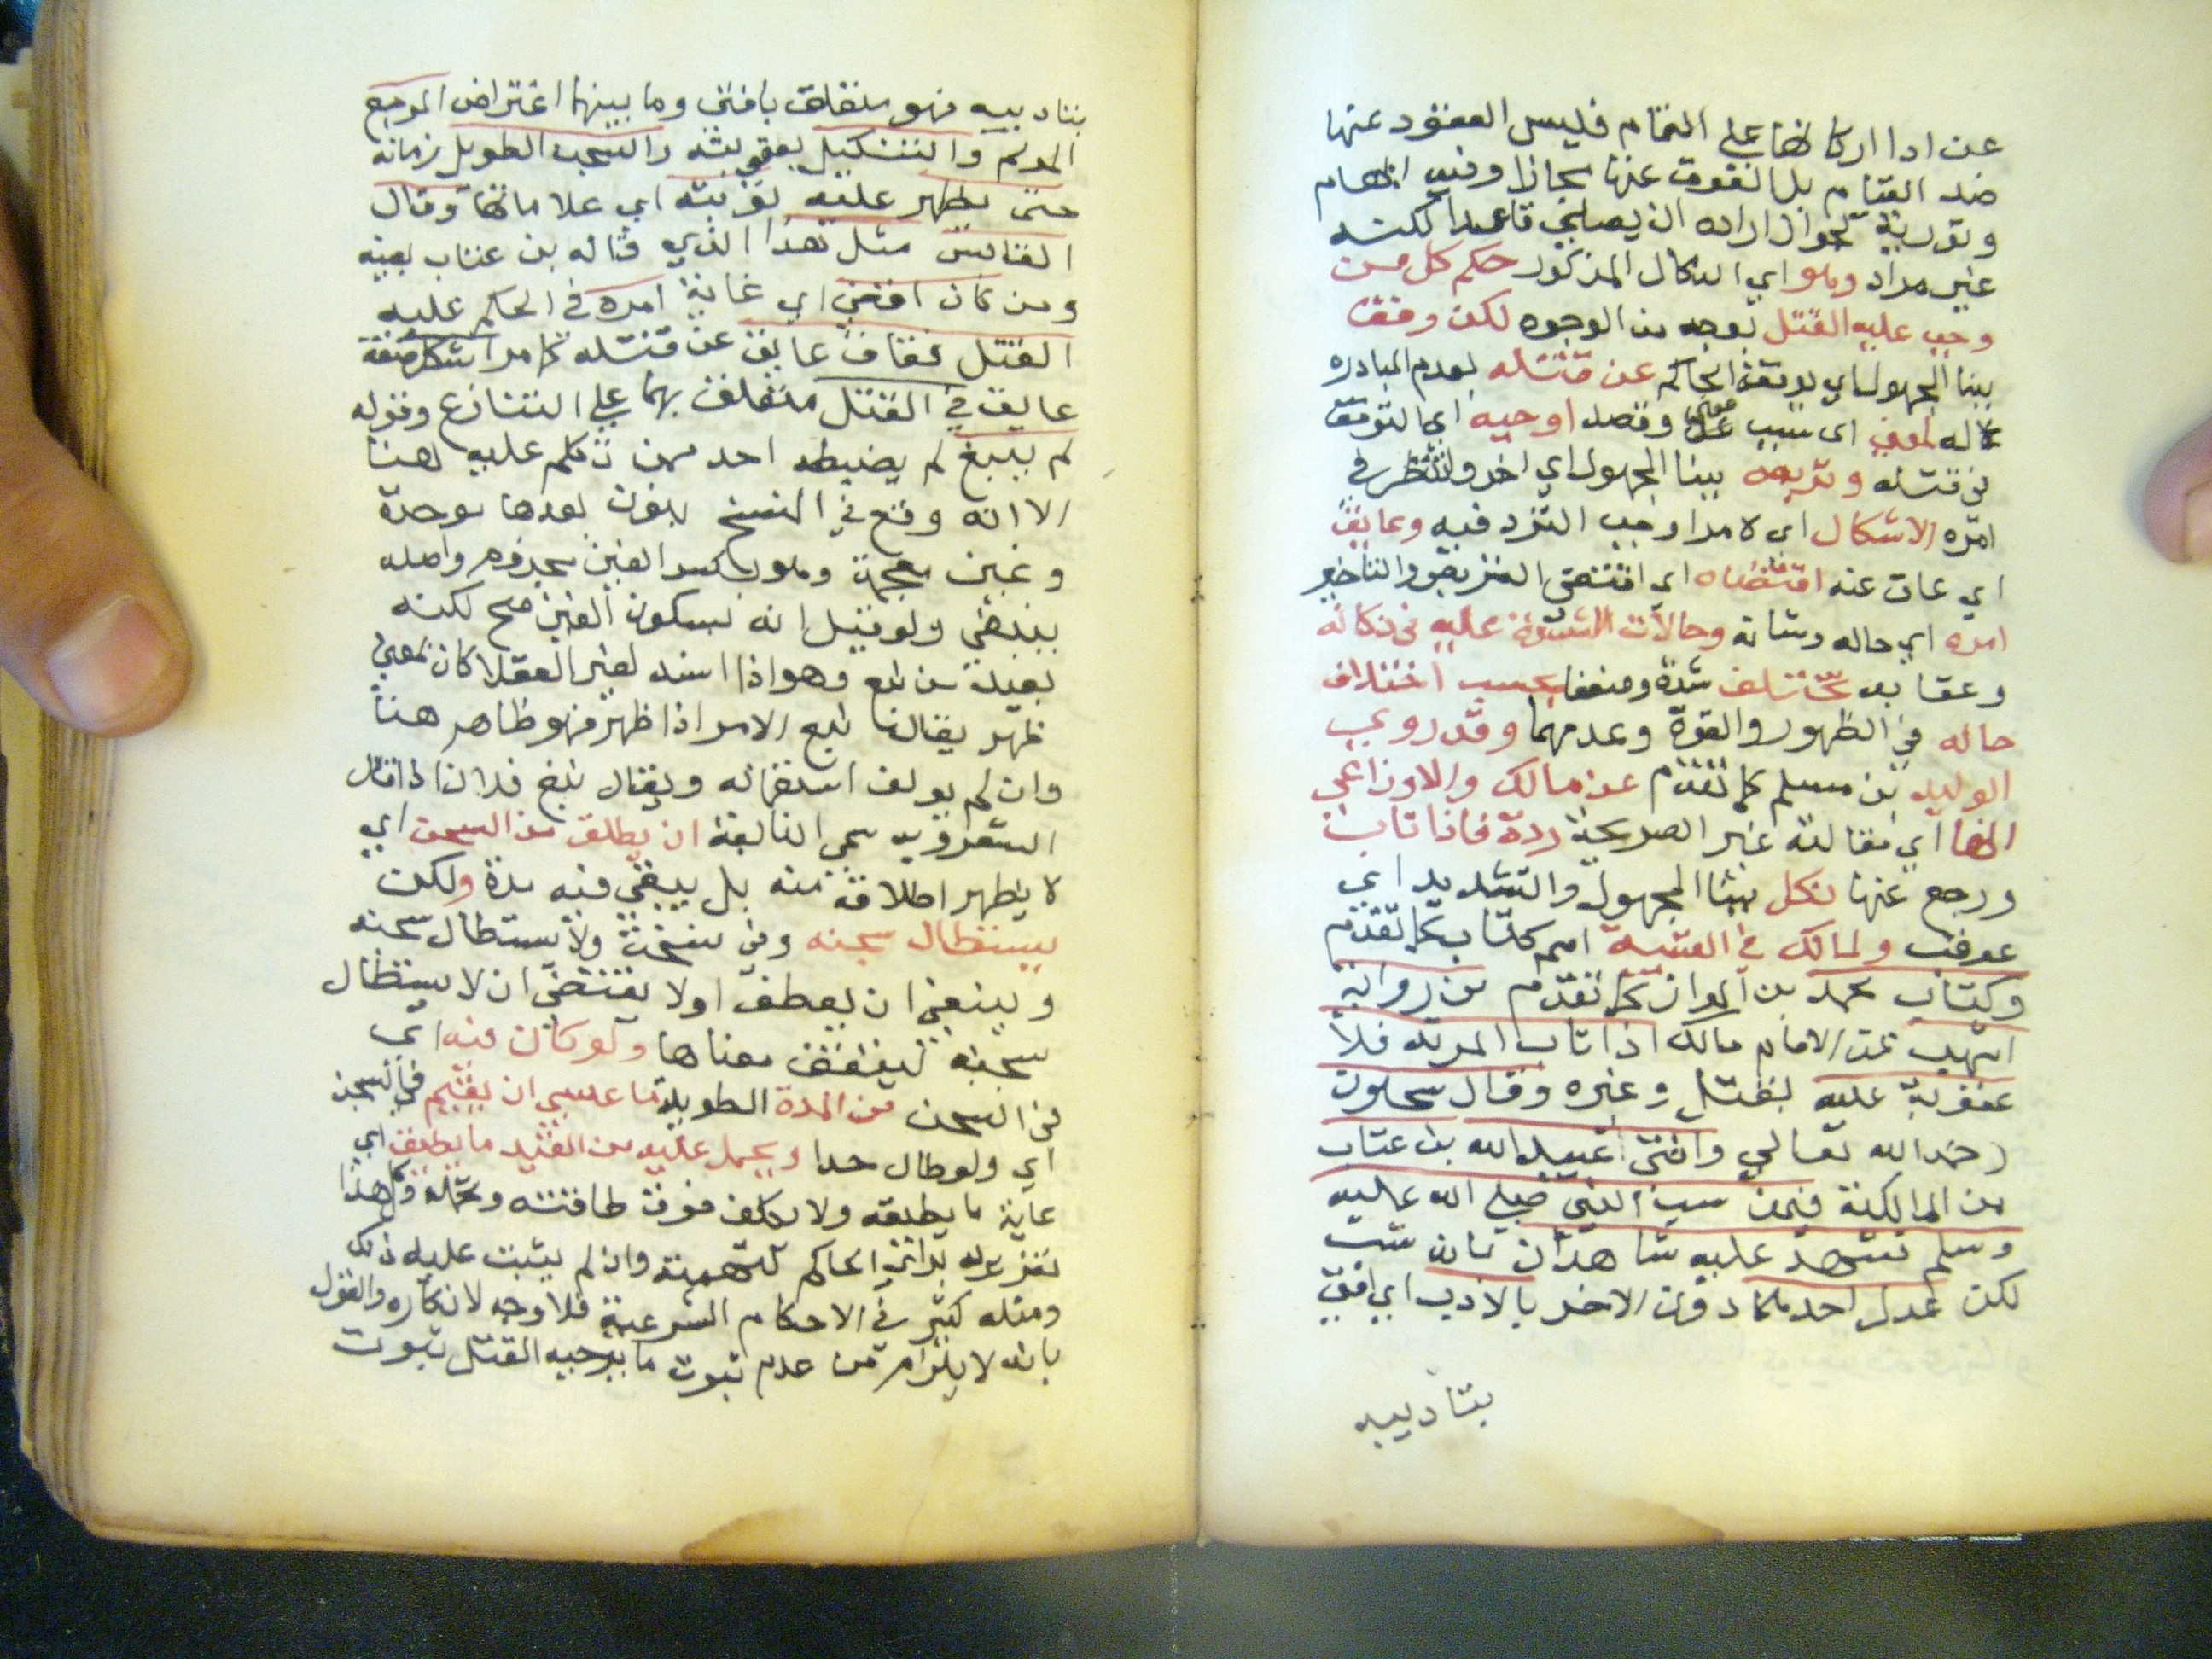 عن ادا اركانها على التمام فليس القعود عنها
ضد القيام بل القعود عنها مجازا وفيه ايهام
وتورية لجواز اراده ان يصلي قاعدا لكنه
غير مراد وهو اي النكال المذكور حكم كل من
وجب عليه القتل بوجه من الوجوه لكن وقف
ببنا المجهول اي توقف الحاكم عن قتله لعدم المبادره
له لمعنى اى سبب وقصد اوجبه اي التوقف
في قتله وتربص ببنا المجهول اي اخر وانتظر في
امره الاشكال اى لامر اوجب التردد فيه وعايق
اي عاق عنه اقتضاه اي اقتضى التربص والتاخير
امره اي حاله وشانه وحالات الشدة عليه في نكاله
وعقابه تختلف شدة وضعفا بحسب اختلاف
حاله في الظهور والقوة وعدمهما وقد روى
الوليد بن مسلم كما تقدم عن مالك والاوزاعي
انها اي مقالته غير الصريحة ردة فاذا تاب
ورجع عنها نكل ببنا المجهول والتشديد اي
عوقب ولمالك في العتبية اسم كتاب كما تقدم
وكتاب محمد بن المواز كما تقدم من رواية
اشهب عن الامام مالك اذا تاب المرتد فلا
عقوبة عليه بقتل وغيره وقال سحنون
رحمه الله تعالى وافتى عبيد الله بن عتاب
من المالكية فيمن سب النبي صلى الله عليه
وسلم فشهد عليه شاهدان بانه سب
لكن عدل احدهما دون الاخر بالادب اي افتى
بتاديبه
بتاديبه فهو متعلق بافتى وما بينهما اعتراض الموجع
المولم والتنكيل بعقوبته والسجن الطويل زمانه
حتى يظهر عليه توبته اي علاماتها وقال
القابسي مثل هذا الذي قاله بن عتاب بعينه
ومن كان اقصى اي غاية امره في الحكم عليه
القتل فعاق عايق عن قتله كامر اشكل صفة
عايق في القتل متعلق بهما على التنازع وقوله
لم ينبغ لم يضبطه احد ممن تكلم عليه هنا
الا انه وقع في النسخ بنون بعدها موحدة
وغين معجمة وهو بكسر الغين مجزوم واصله
ينبغى ولو قيل انه بسكون الغين صح لكنه
بعيد من نبغ وهو اذا اسند لغير العقلا كان بمعنى
ظهر يقال نبغ الامر اذا ظهر فهو ظاهر هنا
وان لم يولف استعماله ويقال نبغ فلان اذا قال
الشعر وبه سمي النابغة ان يطلق من السجن اي
لا يظهر اطلاقه منه بل يبقى فيه مدة ولكن
يستطال سجنه وفي نسخة ولا يستطال سجنه
وينبغي ان يعطف اولا يقتضى ان لا يستطال
سجنه ليتفق معناها ولو كان فيه اي
في السجن من المدة الطويلة ما عسى ان يقيم في السجن
اي ولو طال جدا ويحمل عليه من القيد ما يطيق اي
غاية ما يطيقه ولا يكلف فوق طاقته وتحمله وهذا
تعزير له براي الحاكم لتهمته وان لم يثبت عليه ذلك
ومثله كثير في الاحكام الشرعية فلا وجه لانكاره والقول
بانه لا يلزم من عدم ثبوت ما يوجبه القتل ثبوت